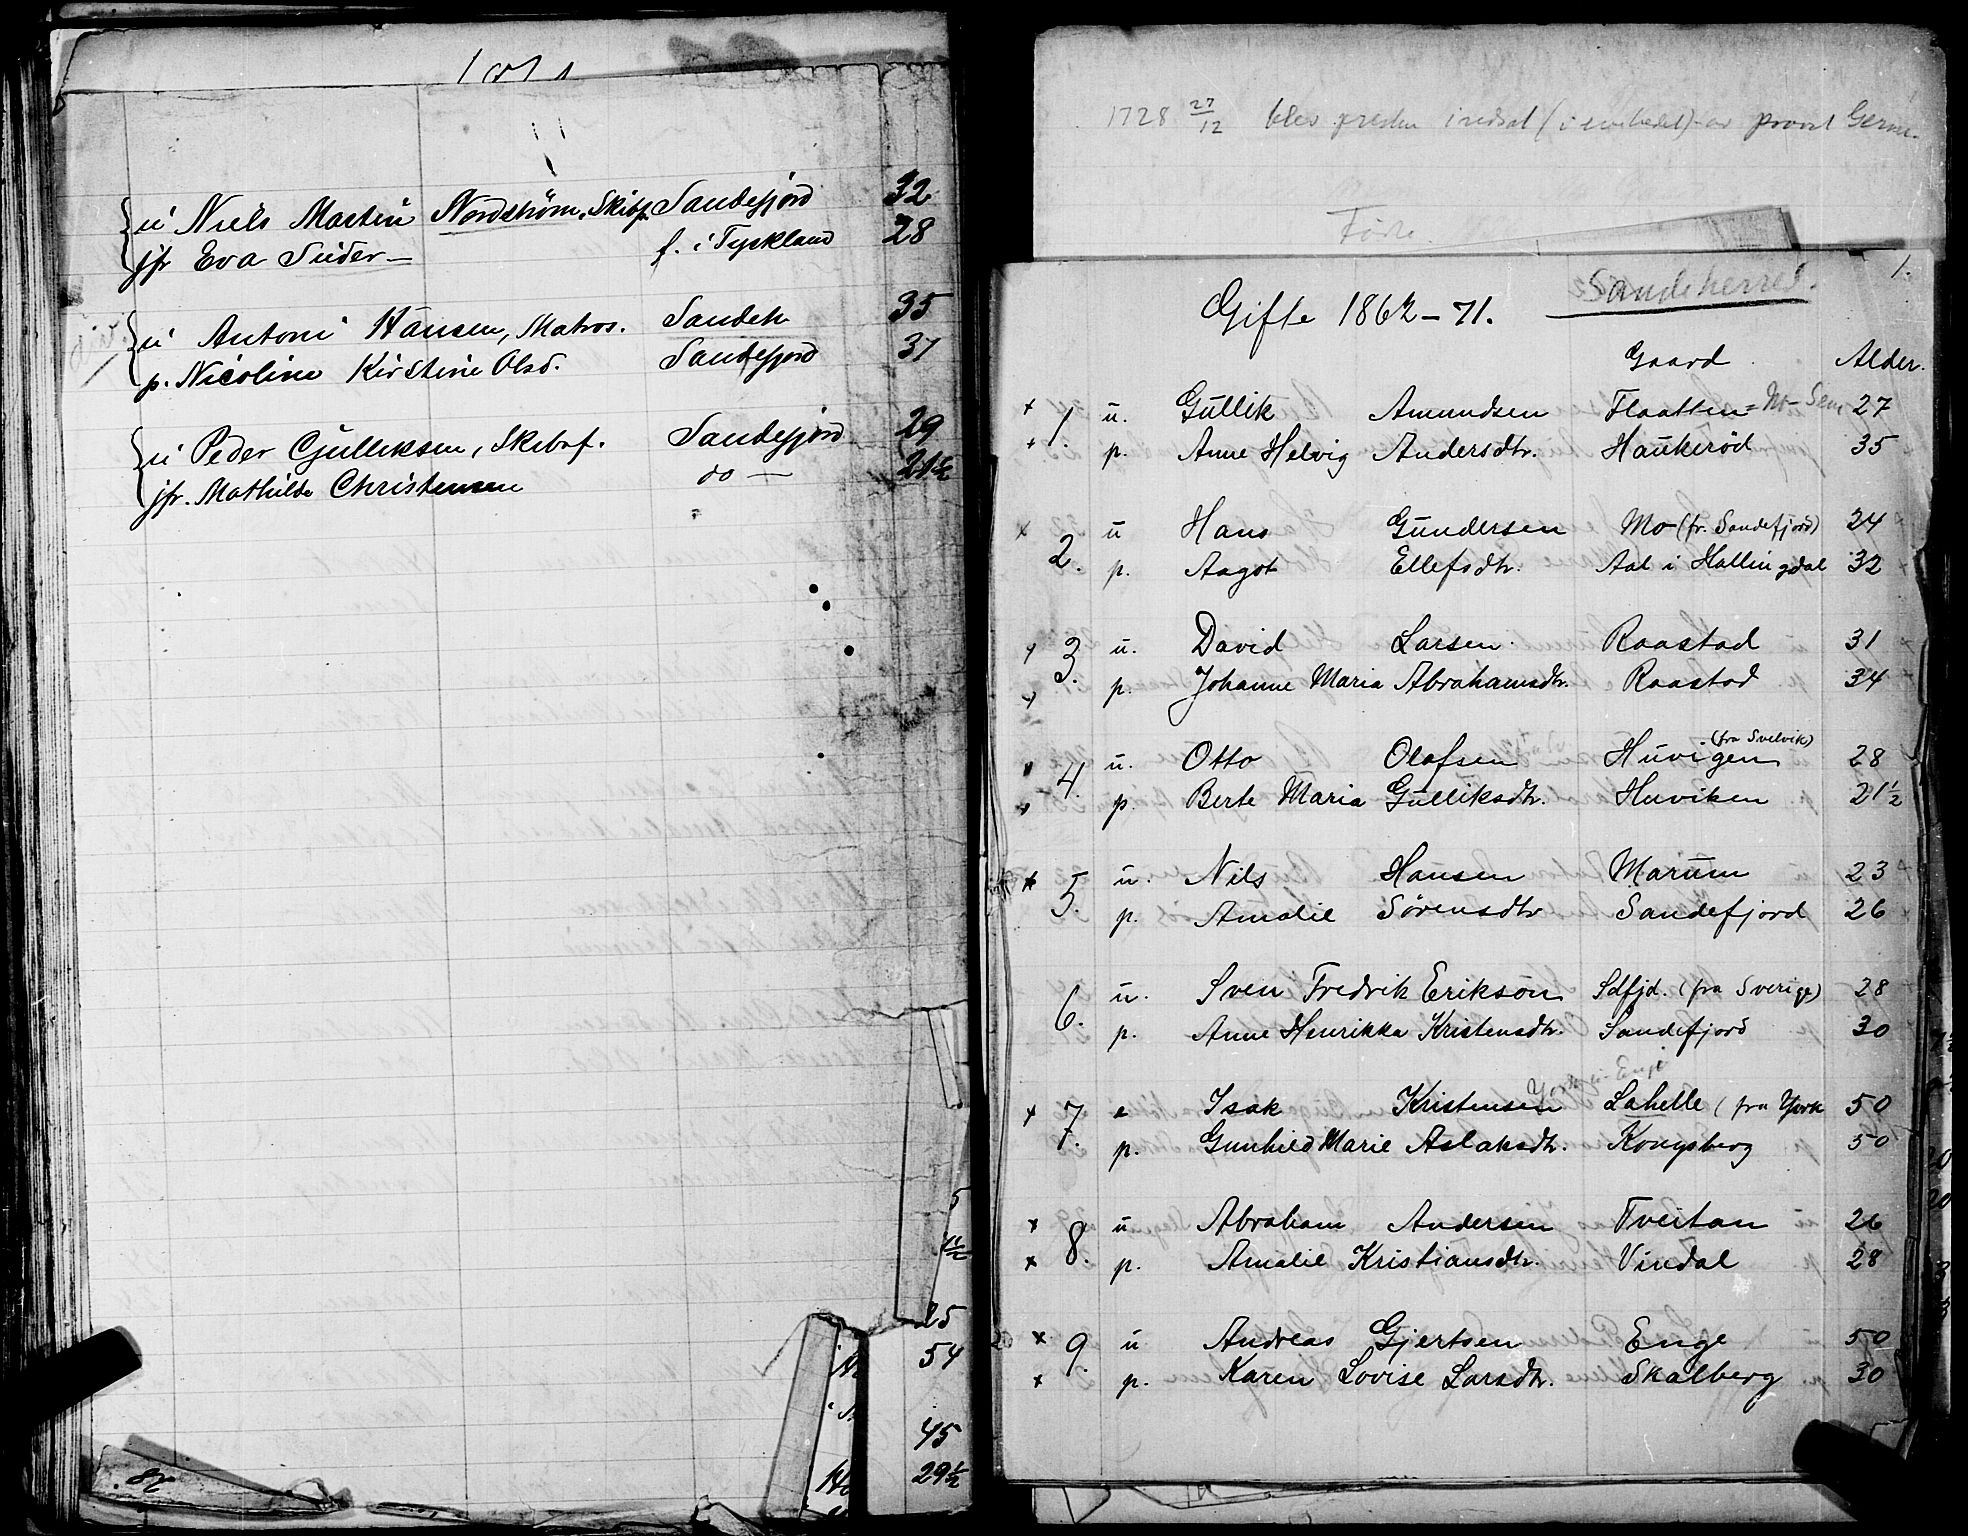 { u Niels Martin Nordstrøm, Skibsf. Sandefjord 32
jfr Eva Süder — f. i Tyskland 28
{ u Antoni Hansen, Matros. Sandeh 35
p. Nicoline Kirstine Olsd. Sandefjord 37
{ u Peder Gulliksen, Skibsf. Sandefjord 29
jfr. Mathilde Christensen do — 21½
25
54
45
29½
1728 27/12 blev presten indsat ( av provst
Føste
1.
Sandeherred.
Gifte 1862-71.
Gaard Alder.
× 1. u. Gullik Amundsen Flaatten = Mo - Sem 27
× p. Anne Helvig Andersdtr. Haukerød 35
× 2. u Hans Gundersen Mo (fr. Sandefjord) 24
p. Aagot Ellefsdtr. Aal i Hallingdal 32
× 3. u. David Larsen. Raastad 31
× p. Johanne Maria Abrahamsdtr. Raastad 34
(fra Svelvik)
× 4. u. Otto Olafsen Huvigen 28
× p. Berte Maria Gulliksdtr. Huviken 21½
× 5. u. Nils Hansen Marum 23
p. Amalie Sørensdtr Sandefjord 26
6. u. Sven Fredrik Erikson Sdfjd. (fra Sverige) 28
p. Anne Henrikka Kristensdtr. Sandefjord 30
× 7. e Isak Kristensen Lahelle (fra York 50
p. Gunhild Marie Aslaksdtr. Kongsberg 50
× 8. u Abraham Andersen Tveitan 26
× p. Amalie Kristiansdtr. Vindal 28
× 9. u Andreas Gjertsen Enge 50
× p. Karen Lovise Larsdtr. Skalberg 30